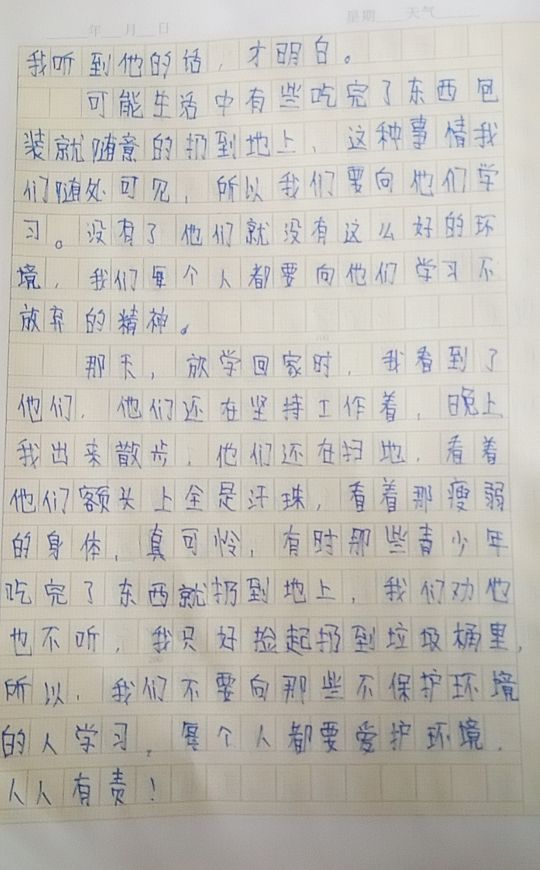 年 月 日 星期 天气
我听到他的话，才明白。
可能生活中有些吃完了东西包
装就随意的扔到地上，这种事情我
们随处可见，所以我们要向他们学
习。没有了他们就没有这么好的环
境，我们每个人都要向他们学习不
放弃的精神。
那天，放学回家时，我看到了
他们，他们还在坚持工作着，晚上
我出来散步，他们还在扫地，看着
他们额头上全是汗珠，看着那瘦弱
的身体，真可怜，有时那些青少年
吃完了东西就扔到地上，我们劝他
也不听，我只好捡起扔到垃圾桶里，
所以，我们不要向那些不保护环境
的人学习，每个人都要爱护环境，
人人有责！